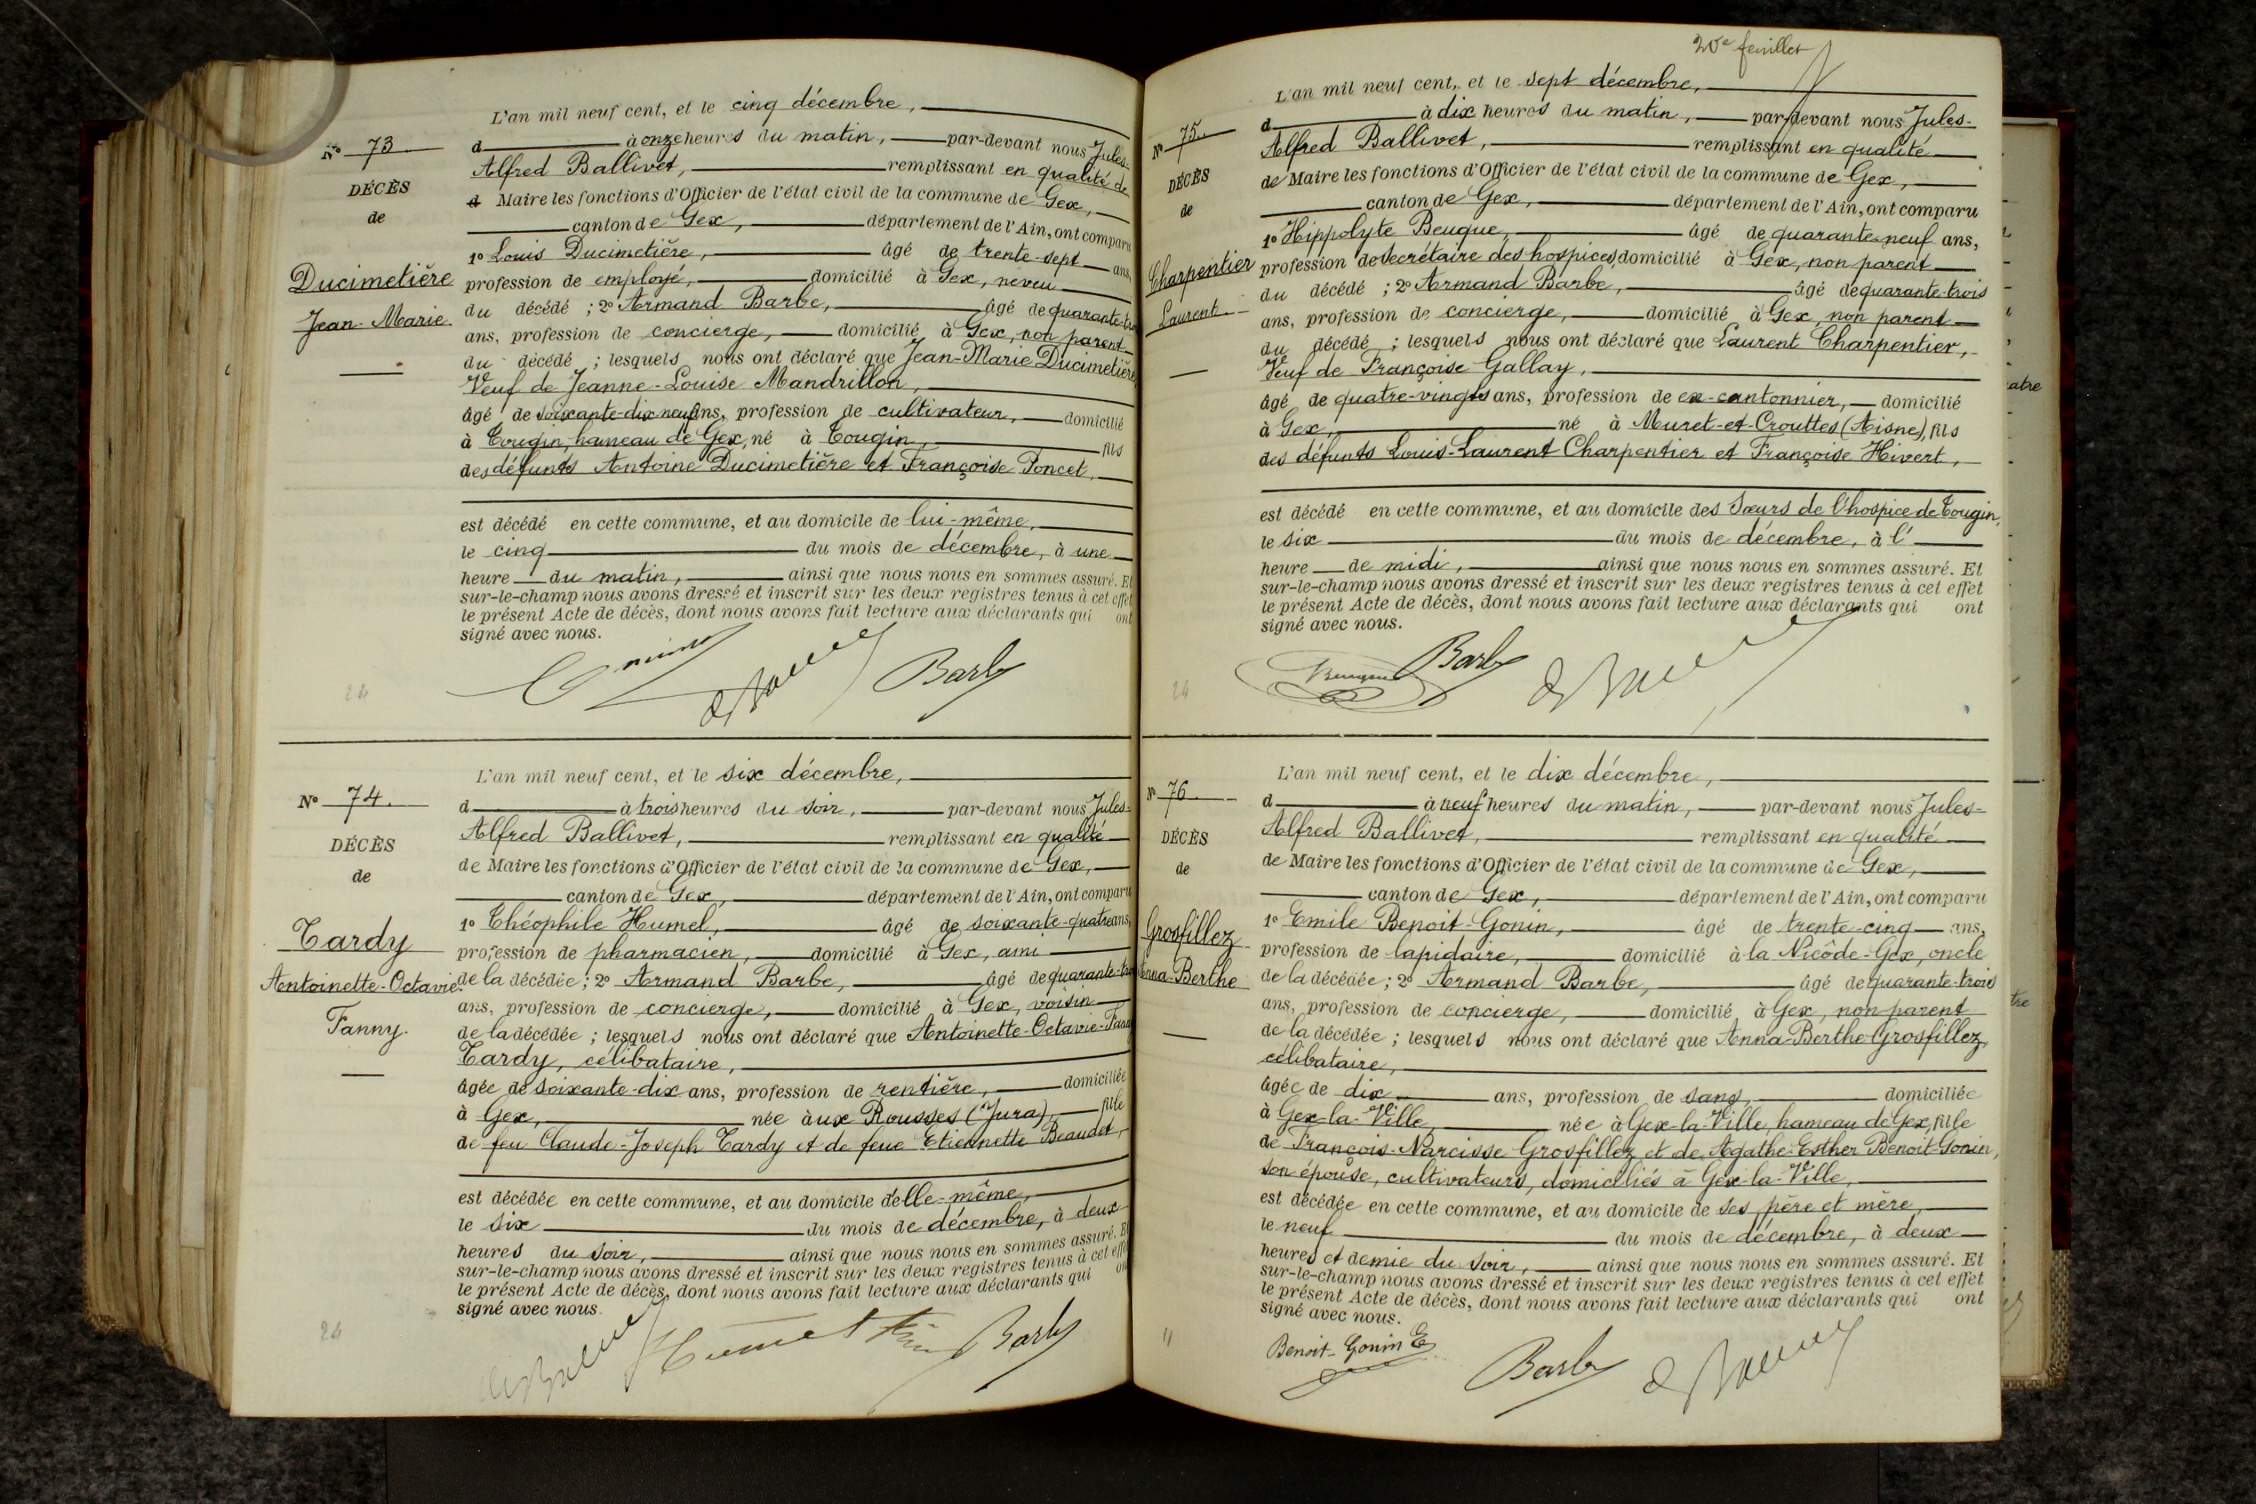 L'an mil neuf cent, et le cinq décembre,
d à onze heures du matin, par-devant nous Jules-
Alfred Ballivet, remplissant en qualité de
d Maire les fonctions d'Officier de l'état civil de la commune de Gex,
canton de Gex, département de l'Ain, ont comparu
1º Louis Ducimetière, âgé de trente-sept ans,
profession de employé, domicilié à Gex, neveu
du décédé ; 2º Armand Barbe, âgé de quarante-trois
ans, profession de concierge, domicilié à Gex, non parent
du décédé ; lesquels nous ont déclaré que Jean-Marie Ducimetière,
Veuf de Jeanne-Louise Mandrillon,
âgé de soixante-dix-neuf ans, profession de cultivateur, domicilié
à Tougin, hameau de Gex, né à Tougin, fils
des défunts Antoine Ducimetière et Françoise Poncet,
est décédé en cette commune, et au domicile de lui-même,
le cinq du mois de décembre, à une
heure du matin, ainsi que nous nous en sommes assuré. Et
sur-le-champ nous avons dressé et inscrit sur les deux registres tenus à cet effet
le présent Acte de décès, dont nous avons fait lecture aux déclarants qui ont
signé avec nous.
Barbe
Nº 73
DÉCÈS
de
Ducimetière
Jean-Marie.
24
L'an mil neuf cent, et le six décembre,
d à trois heures du soir, par-devant nous Jules-
Alfred Ballivet, remplissant en qualité
de Maire les fonctions d'Officier de l'état civil de la commune de Gex,
canton de Gex, département de l'Ain, ont comparu
1º Théophile Humel, âgé de soixante-quatre ans,
profession de pharmacien, domicilié à Gex, ami
de la décédée ; 2º Armand Barbe, âgé de quarante-trois
ans, profession de concierge, domicilié à Gex, voisin
de la décédée ; lesquels nous ont déclaré que Antoinette-Octavie-Fanny
Tardy, célibataire,
âgée de soixante-dix ans, profession de rentière, domiciliée
à Gex, née aux Rousses (Jura), fille
de feu Claude-Joseph Tardy et de feue Etiennette Beaudet,
est décédée en cette commune, et au domicile d'elle-même,
le six du mois de décembre, à deux
heures du soir, ainsi que nous nous en sommes assuré. Et
sur-le-champ nous avons dressé et inscrit sur les deux registres tenus à cet effet
le présent Acte de décès, dont nous avons fait lecture aux déclarants qui ont
signé avec nous.
Barbe
Nº 74.
DÉCÈS
de
Tardy
Antoinette-Octavie-
Fanny.
24
20e feuillet
L'an mil neuf cent, et le sept décembre,
d à dix heures du matin, par-devant nous Jules-
Alfred Ballivet, remplissant en qualité
de Maire les fonctions d'Officier de l'état civil de la commune de Gex,
canton de Gex, département de l'Ain, ont comparu
1º Hippolyte Beuque, âgé de quarante-neuf ans,
profession de secrétaire des hospices, domicilié à Gex, non parent
du décédé ; 2º Armand Barbe, âgé de quarante-trois
ans, profession de concierge, domicilié à Gex, non parent
du décédé ; lesquels nous ont déclaré que Laurent Charpentier,
Veuf de Françoise Gallay,
âgé de quatre-vingts ans, profession de ex-cantonnier, domicilié
à Gex, né à Muret-et-Crouttes (Aisne), fils
des défunts Louis-Laurent Charpentier et Françoise Hivert,
est décédé en cette commune, et au domicile des Sœurs de l'hospice de Tougin,
le six du mois de décembre, à l'
heure de midi, ainsi que nous nous en sommes assuré. Et
sur-le-champ nous avons dressé et inscrit sur les deux registres tenus à cet effet
le présent Acte de décès, dont nous avons fait lecture aux déclarants qui ont
signé avec nous.
Barbe
Nº 75.
DÉCÈS
de
Charpentier
Laurent.
24
L'an mil neuf cent, et le dix décembre,
d à neuf heures du matin, par-devant nous Jules-
Alfred Ballivet, remplissant en qualité
de Maire les fonctions d'Officier de l'état civil de la commune de Gex,
canton de Gex, département de l'Ain, ont comparu
1º Emile Benoit-Gonin, âgé de trente-cinq ans,
profession de lapidaire, domicilié à la Nicôde-Gex, oncle
de la décédée ; 2º Armand Barbe, âgé de quarante-trois
ans, profession de concierge, domicilié à Gex, non parent
de la décédée ; lesquels nous ont déclaré que Anna-Berthe Grosfillez,
célibataire,
âgée de dix ans, profession de sans, domiciliée
à Gex-la-Ville, née à Gex-la-Ville, hameau de Gex, fille
de François-Narcisse Grosfillez et de Agathe-Esther Benoit-Gonin,
son épouse, cultivateurs, domiciliés à Gex-la-Ville,
est décédée en cette commune, et au domicile de ses père et mère,
le neuf du mois de décembre, à deux
heures et demie du soir, ainsi que nous nous en sommes assuré. Et
sur-le-champ nous avons dressé et inscrit sur les deux registres tenus à cet effet
le présent Acte de décès, dont nous avons fait lecture aux déclarants qui ont
signé avec nous.
Benoit-Gonin E
Barbe
Nº 76
DÉCÈS
de
Grosfillez
Anna-Berthe